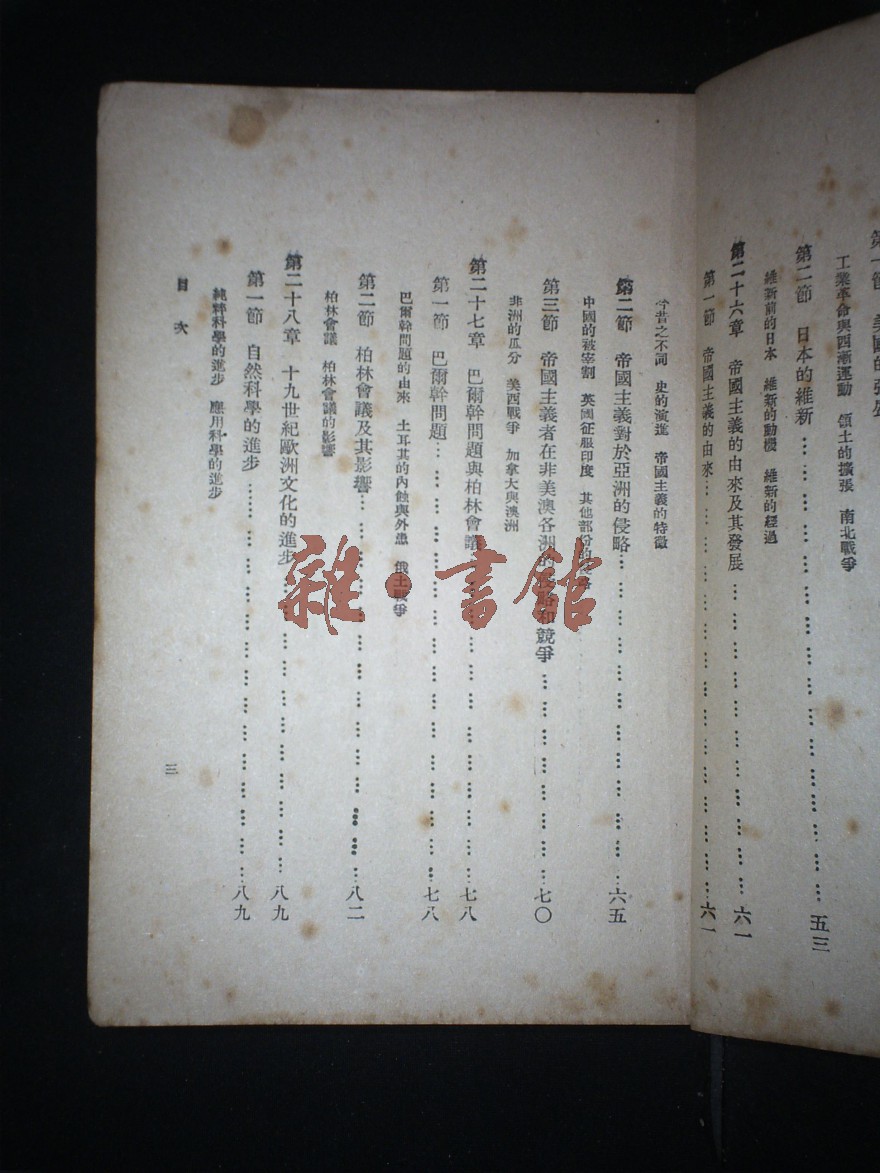 第一節 美國的強盛
工業革命與西漸運動 領土的擴張 南北戰爭
第二節 日本的維新…………………………五三
維新前的日本 維新的動機 維新的經過
第二十六章 帝國主義的由來及其發展…………………………六一
第一節 帝國主義的由來…………………………六一
今昔之不同 史的演進 帝國主義的特徵
第二節 帝國主義對於亞洲的侵略…………………………六五
中國的被宰割 英國征服印度 其他部份的
第三節 帝國主義者在非美澳各洲的 和競爭…………………………七〇
非洲的瓜分 美西戰爭 加拿大與澳洲
第二十七章 巴爾幹問題與柏林會議…………………………七八
第一節 巴爾幹問題…………………………七八
巴爾幹問題的由來 土耳其的內蝕與外患 俄土戰爭
第二節 柏林會議及其影響…………………………八二
柏林會議 柏林會議的影響
第二十八章 十九世紀歐洲文化的進步…………………………八九
第一節 自然科學的進步…………………………八九
純粹科學的進步 應用科學的進步
目次
三
雜·書館